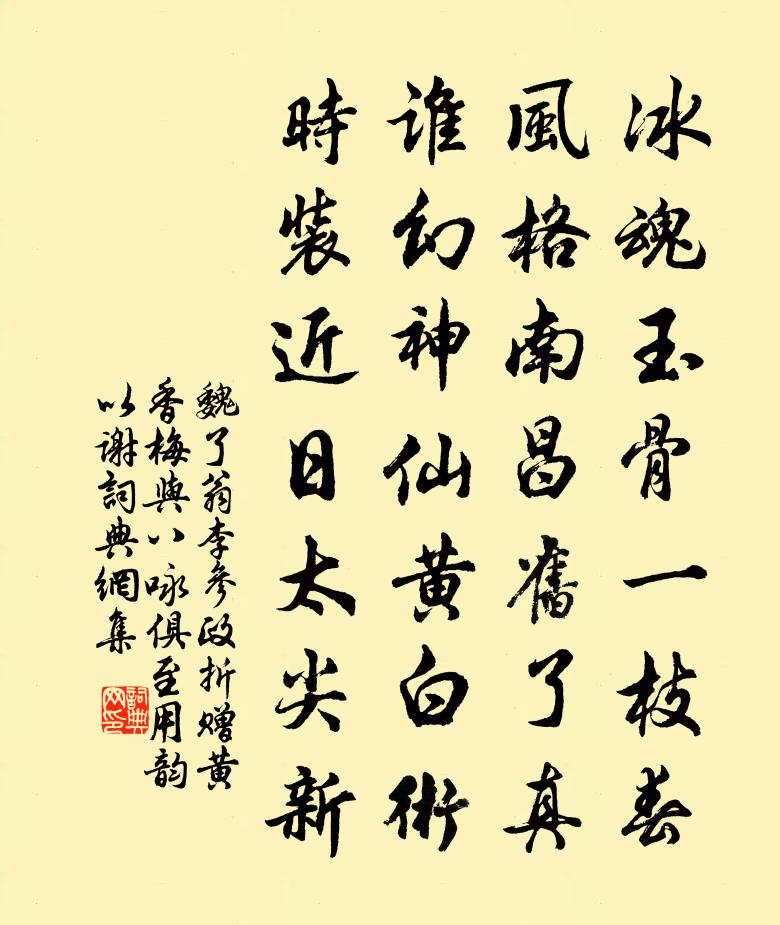 冰魂玉骨一枝春
風格南昌舊了真
誰幻神仙黄白術
時裝近日太尖新
魏了翁李參政折贈黄
香梅與八咏俱至用韵
以謝詞典網集
詞典网印